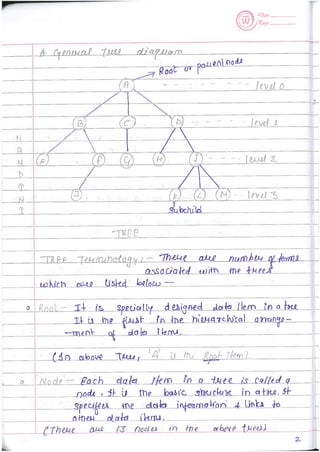 A General Tree diagram
Root or parent node
A
level 0
B C D
level 1
F G H I
level 2
J K L M
level 3
Subchild
TREE
TREE Terminology :- There are number of terms
associated with the trees
which are listed below —
Root - It is specially designed data item in a tree
It is the first in the hierarchical arrange-
-ment of data items.
(In above Tree, 'A' is the Root item)
Node - Each data item in a tree is called a
node, It is the basic structure in a tree. It
specifies the data information & links to
other data items.
(There are 13 nodes in the above tree)
2